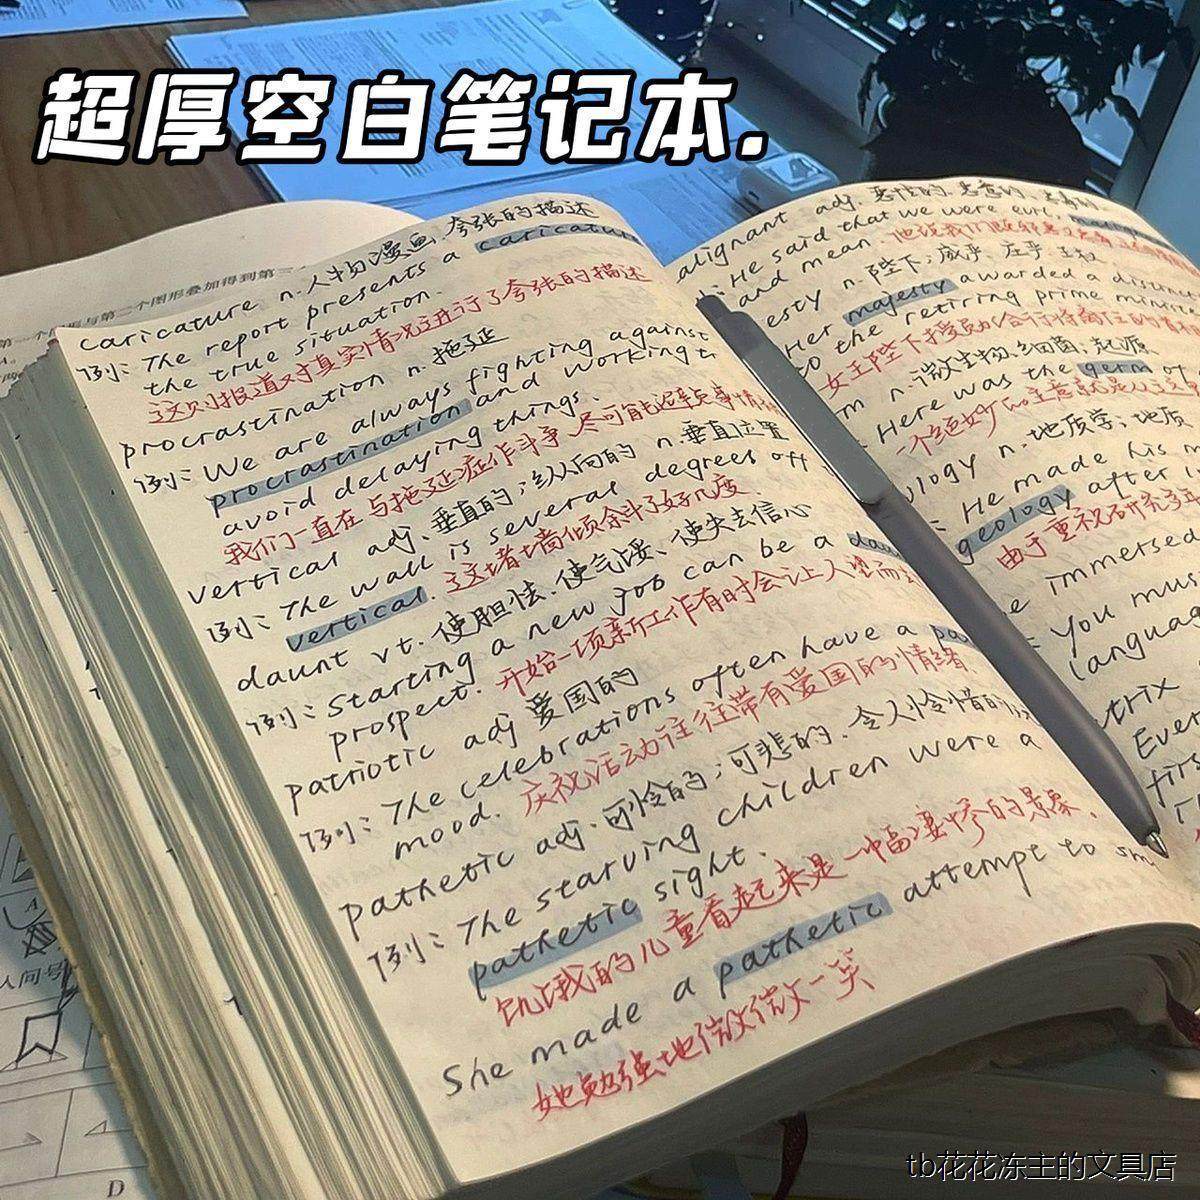 超厚空白笔记本.
一个图形叠加得到第三
第一个图形与第二个
caricature n.人物漫画、夸张的描述
例: The report presents a caricature
the true situation.
这则报道对真实情况进行了夸张的描述
procrastination n.拖延
例: We are always fighting against
procrastination and working t
avoid delaying things.
我们一直在与拖延症作斗争,尽可能
vertical adj.垂直的;纵向的 n.垂直位置
例: The wall is several degrees off
vertical. 这堵墙倾斜了好几度
daunt vt.使胆怯、使气馁、使失去信心
例: Starting a new job can be a daun
prospect. 开始一项新工作有时会让人望而
patriotic adj 爱国的
例: The celebrations often have a pa
mood. 庆祝活动往往带有爱国的情绪.
pathetic adj.可怜的;可悲的、令人怜惜的
例: The starving children were a
pathetic sight.
饥饿的儿童看起来是一幅凄惨的景象.
She made a pathetic attempt to sm
她勉强地微微一笑
alignant adj.恶性的、恶意的、
: He said that we were evil,
and mean.
esty n.陛下;威严、庄严、王权
Her majesty awarded a distinc
to the retiring prime minis
女王陛下授勋给行将离任的首
m n.微生物、细菌、起源
Here was the germ of
一个绝妙的主意就是从这
ology n.地质学;地质
: He made his
geology after
由于重视研究
e immersed
: You mus
languag
trix
Eve
firs
人问号
D
tb花花冻主的文具店